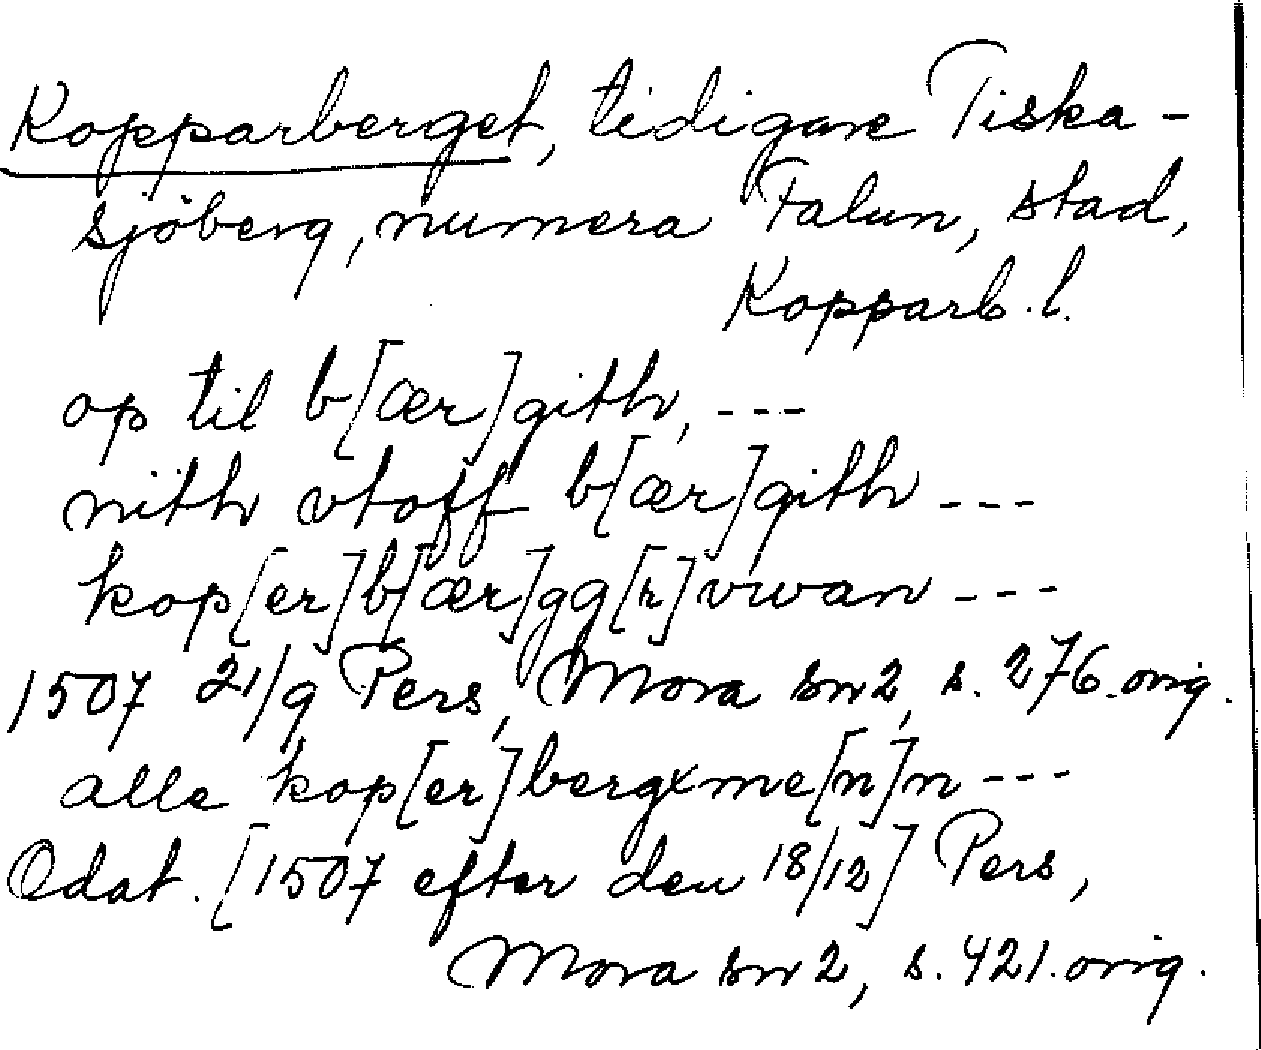 Kopparberget, tidigare Tiska-
sjöberg, numera Falun, stad,
Kopparb. l.
op til b[ær]gith, ---
nith vtoff b[ær]gith ---
kop[er]b[ær]gg[r]vwan ---
1507 21/9 Pers, Mora sn 2, s. 276. orig.
alle kop[er]bergxme[n]n ---
Odat. [1507 efter den 18/12] Pers,
Mora sn 2, s. 421. orig.